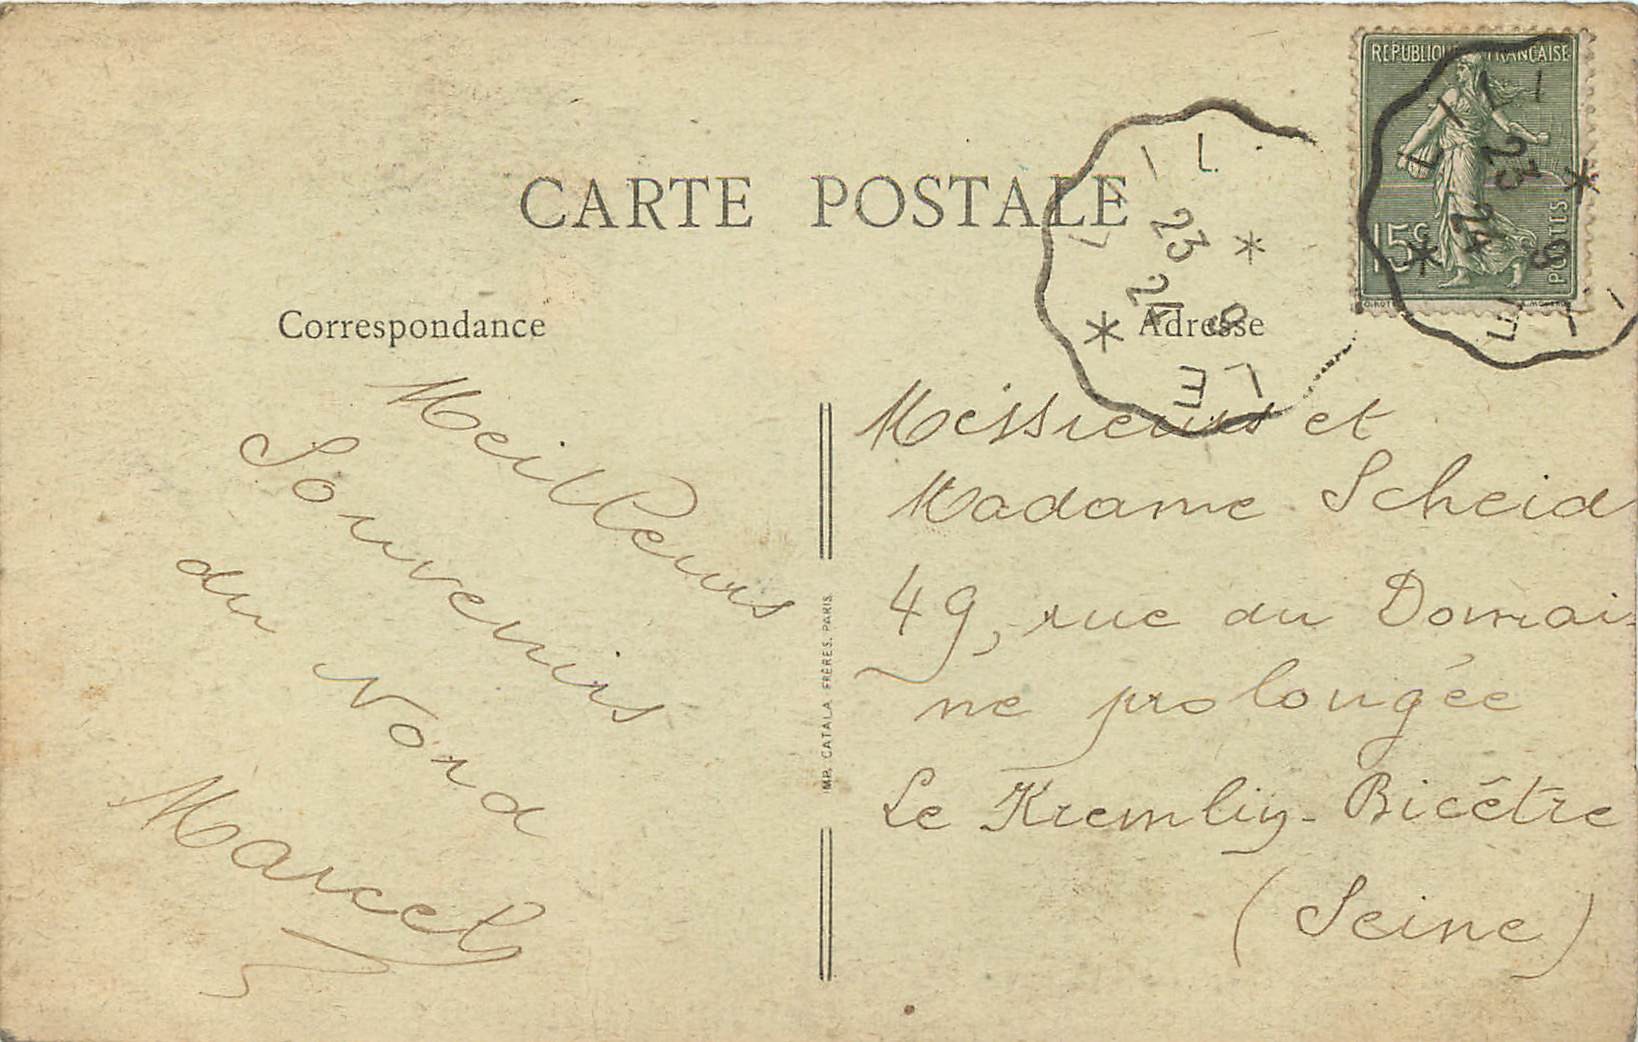 RÉPUBLIQUE FRANÇAISE
15c
POSTES
23
24
9
CARTE POSTALE
23
24
9
LE
Correspondance
Adresse
Meilleurs
Souvenirs
du Nord
Marcel
IMP. CATALA FRÈRES. PARIS
Messieurs et
Madame Scheid
49, rue du Domai-
ne prolongée
Le Kremlin-Bicêtre
(Seine)